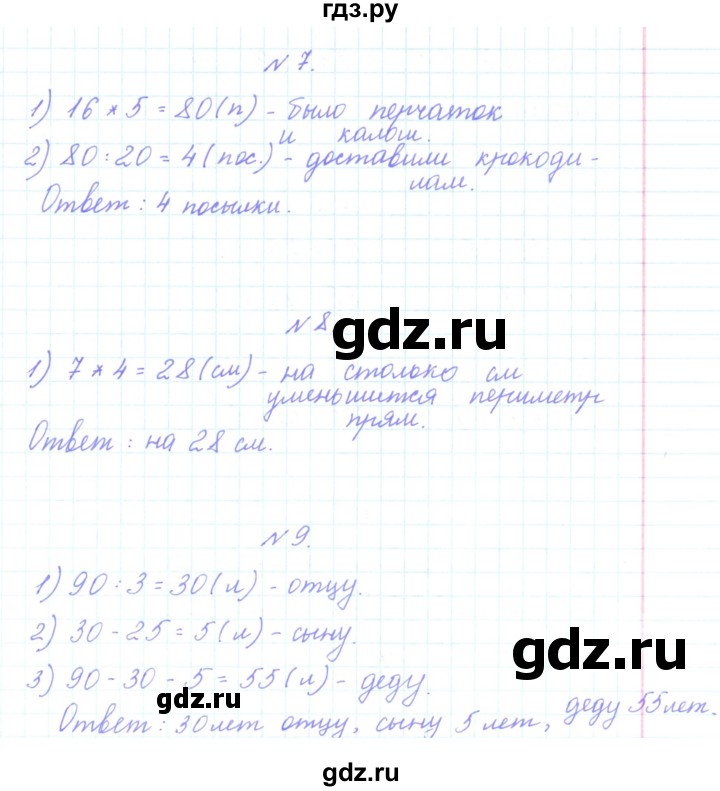 гдз.ру
N 7.
1) 16 * 5 = 80 (п) - было перчаток
и калош.
2) 80 : 20 = 4 (пос.) - доставили крокоди-
лам.
Ответ : 4 посылки.
N 8
gdz.ru
1) 7 * 4 = 28 (см) - на столько см
уменьшится периметр
прям.
Ответ : на 28 см.
N 9.
1) 90 : 3 = 30 (л) - отцу.
2) 30 - 25 = 5 (л) - сыну.
gdz.ru
3) 90 - 30 - 5 = 55 (л) - деду.
gdz.ru
Ответ : 30 лет отцу, сыну 5 лет, деду 55 лет.
gdz.ru